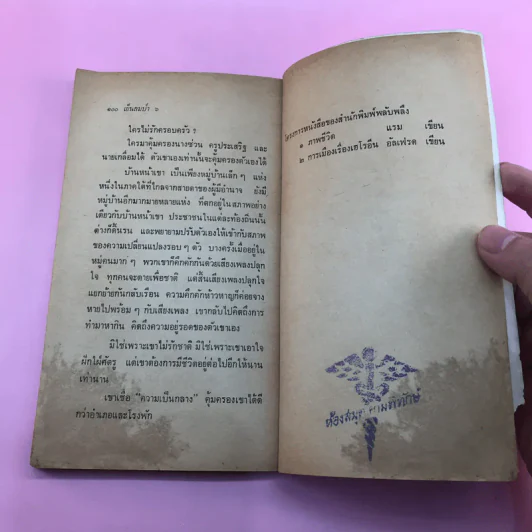 ๑๐๐ เย็นลมป่า ๖
ใครไม่รักครอบครัว ?
ใครมาคุ้มครองนางช่วน ครูประเสริฐ และ
นายเกลื่อมได้ ตัวเขาเองเท่านั้นจะคุ้มครองตัวเองได้
บ้านหน้าเขา เป็นเพียงหมู่บ้านเล็ก ๆ แห่ง
หนึ่งในภาคใต้ที่ไกลจากสายตาของผู้มีอำนาจ ยังมี
หมู่บ้านอีกมากมายหลายแห่ง ที่ตกอยู่ในสภาพอย่าง
เดียวกับบ้านหน้าเขา ประชาชนในแต่ละท้องถิ่นนั้น
ต่างก็ดิ้นรน และพยายามปรับตัวเองให้เข้ากับสภาพ
ของความเปลี่ยนแปลงรอบ ๆ ตัว บางครั้งเมื่ออยู่ใน
หมู่คนมาก ๆ พวกเขาก็คึกคักกันด้วยเสียงเพลงปลุก
ใจ ทุกคนจะตายเพื่อชาติ แต่สิ้นเสียงเพลงปลุกใจ
แยกย้ายกันกลับเรือน ความคึกคักห้าวหาญก็ค่อยจาง
หายไปพร้อม ๆ กับเสียงเพลง เขากลับไปคิดถึงการ
ทำมาหากิน คิดถึงความอยู่รอดของตัวเขาเอง
มิใช่เพราะเขาไม่รักชาติ มิใช่เพราะเขาเอาใจ
ฝักใฝ่ศัตรู แต่เขาต้องการมีชีวิตอยู่ต่อไปอีกให้นาน
เท่านาน
เขาเชื่อ “ความเป็นกลาง” คุ้มครองเขาได้ดี
กว่าอำเภอและโรงพัก
โครงการหนังสือของสำนักพิมพ์พลับพลึง
๑ ภาพชีวิต แรม เขียน
๒ การเมืองเรื่องเฮโรอีน อัลเฟรด เขียน
ห้องสมุด